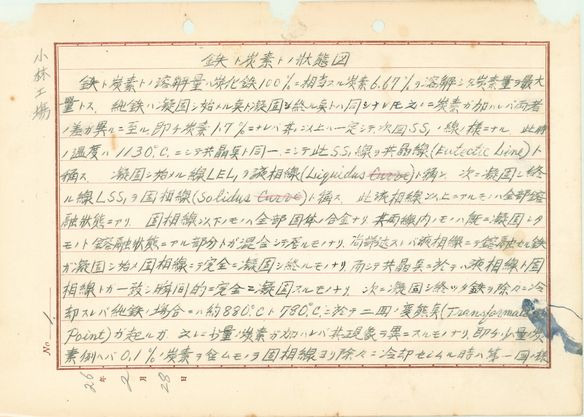 鉄ト炭素トノ状態図
鉄ト炭素トノ溶解量ハ炭化鉄100%ニ相当スル炭素6.67%ヲ溶解シタ炭素量ヲ最大
量トス. 純鉄ハ凝固シ始メル点ト凝固シ終ル点トハ同シナレ共之ニ炭素ガ加ハレバ両者
ノ差ガ異ルニ至ル, 即チ炭素1.7%ニナレバ其レ以上ハ一定シテ次図SS₁ノ線ノ様ニナル. 此時
ノ温度ハ1130°C.ニシテ共晶点ト同一ニシテ此SS₁線ヲ共晶線(Eutectic Line)ト
稱ス 凝固シ始メル線LEL₁ヲ液相線(Liquidus Curve)ト稱シ 次ニ凝固シ終
ル線LSS₁ヲ固相線(Solidus Curve)ト稱ス 此液相線以上ニアルモノハ全部鎔
融状態ニアリ 固相線以下ノモノハ全部固体ノ合金ナリ 其両線内ノモノハ既ニ凝固シタ
モノト鎔融状態ニアル部分トガ混合シテ居ルモノナリ 尚液相線ニテ鎔融セル鉄
ガ凝固シ始メ固相線ニテ完全ニ凝固シ終ルモノナリ 而シテ共晶点ニ於テハ液相線ト固
相線トガ一致シ瞬間的ニ完全ニ凝固スルモノナリ 次ニ凝固シ終ッタ鉄ヲ除々ニ冷
却スレバ純鉄ノ場合ニハ約880°Cト780°Cニ於テ二回ノ変態点(Transformation
Point)ガ起ルガ 之レニ少量ノ炭素ガ加ハレバ其現象ヲ異ニスルモノナリ, 即チ少量ノ炭
素例ヘバ0.1%ノ炭素ヲ含ムモノヲ固相線ヨリ除々ニ冷却セシムル時ハ第一回ノ線
小林工場
No 1
26年 2月 28日